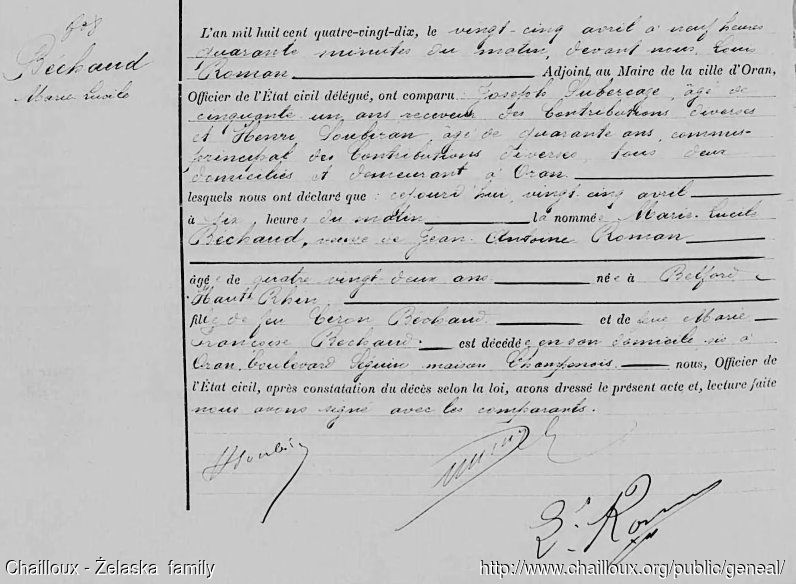 Bechaud
Marie Lucile
L'an mil huit cent quatre-vingt-dix, le vingt-cinq avril à neuf heures
quarante minutes du matin, devant nous, Louis
Roman Adjoint au Maire de la ville d'Oran,
Officier de l'État civil délégué, ont comparu : Joseph Lubercaze, âgé de
cinquante un ans receveur des Contributions diverses
et Henri Soubiran, âgé de quarante ans, commis-
principal des Contributions diverses, tous deux
domiciliés et demeurant à Oran.
lesquels nous ont déclaré que : cejourd'hui, vingt-cinq avril
à six heures du matin la nommée Marie Lucile
Bechaud, veuve de Jean Antoine Roman
âgée de quatre vingt deux ans née à Belfort
Haut Rhin
fille de feu Bechaud et de feue Marie
Françoise Bechaud. est décédée en son domicile sis à
Oran, boulevard Séguin maison Champenois nous, Officier de
l'État civil, après constatation du décès selon la loi, avons dressé le présent acte et, lecture faite
nous avons signé avec les comparants.
HSoubir
Ls. Roman
Chailloux - Żelaska family
http://www.chailloux.org/public/geneal/